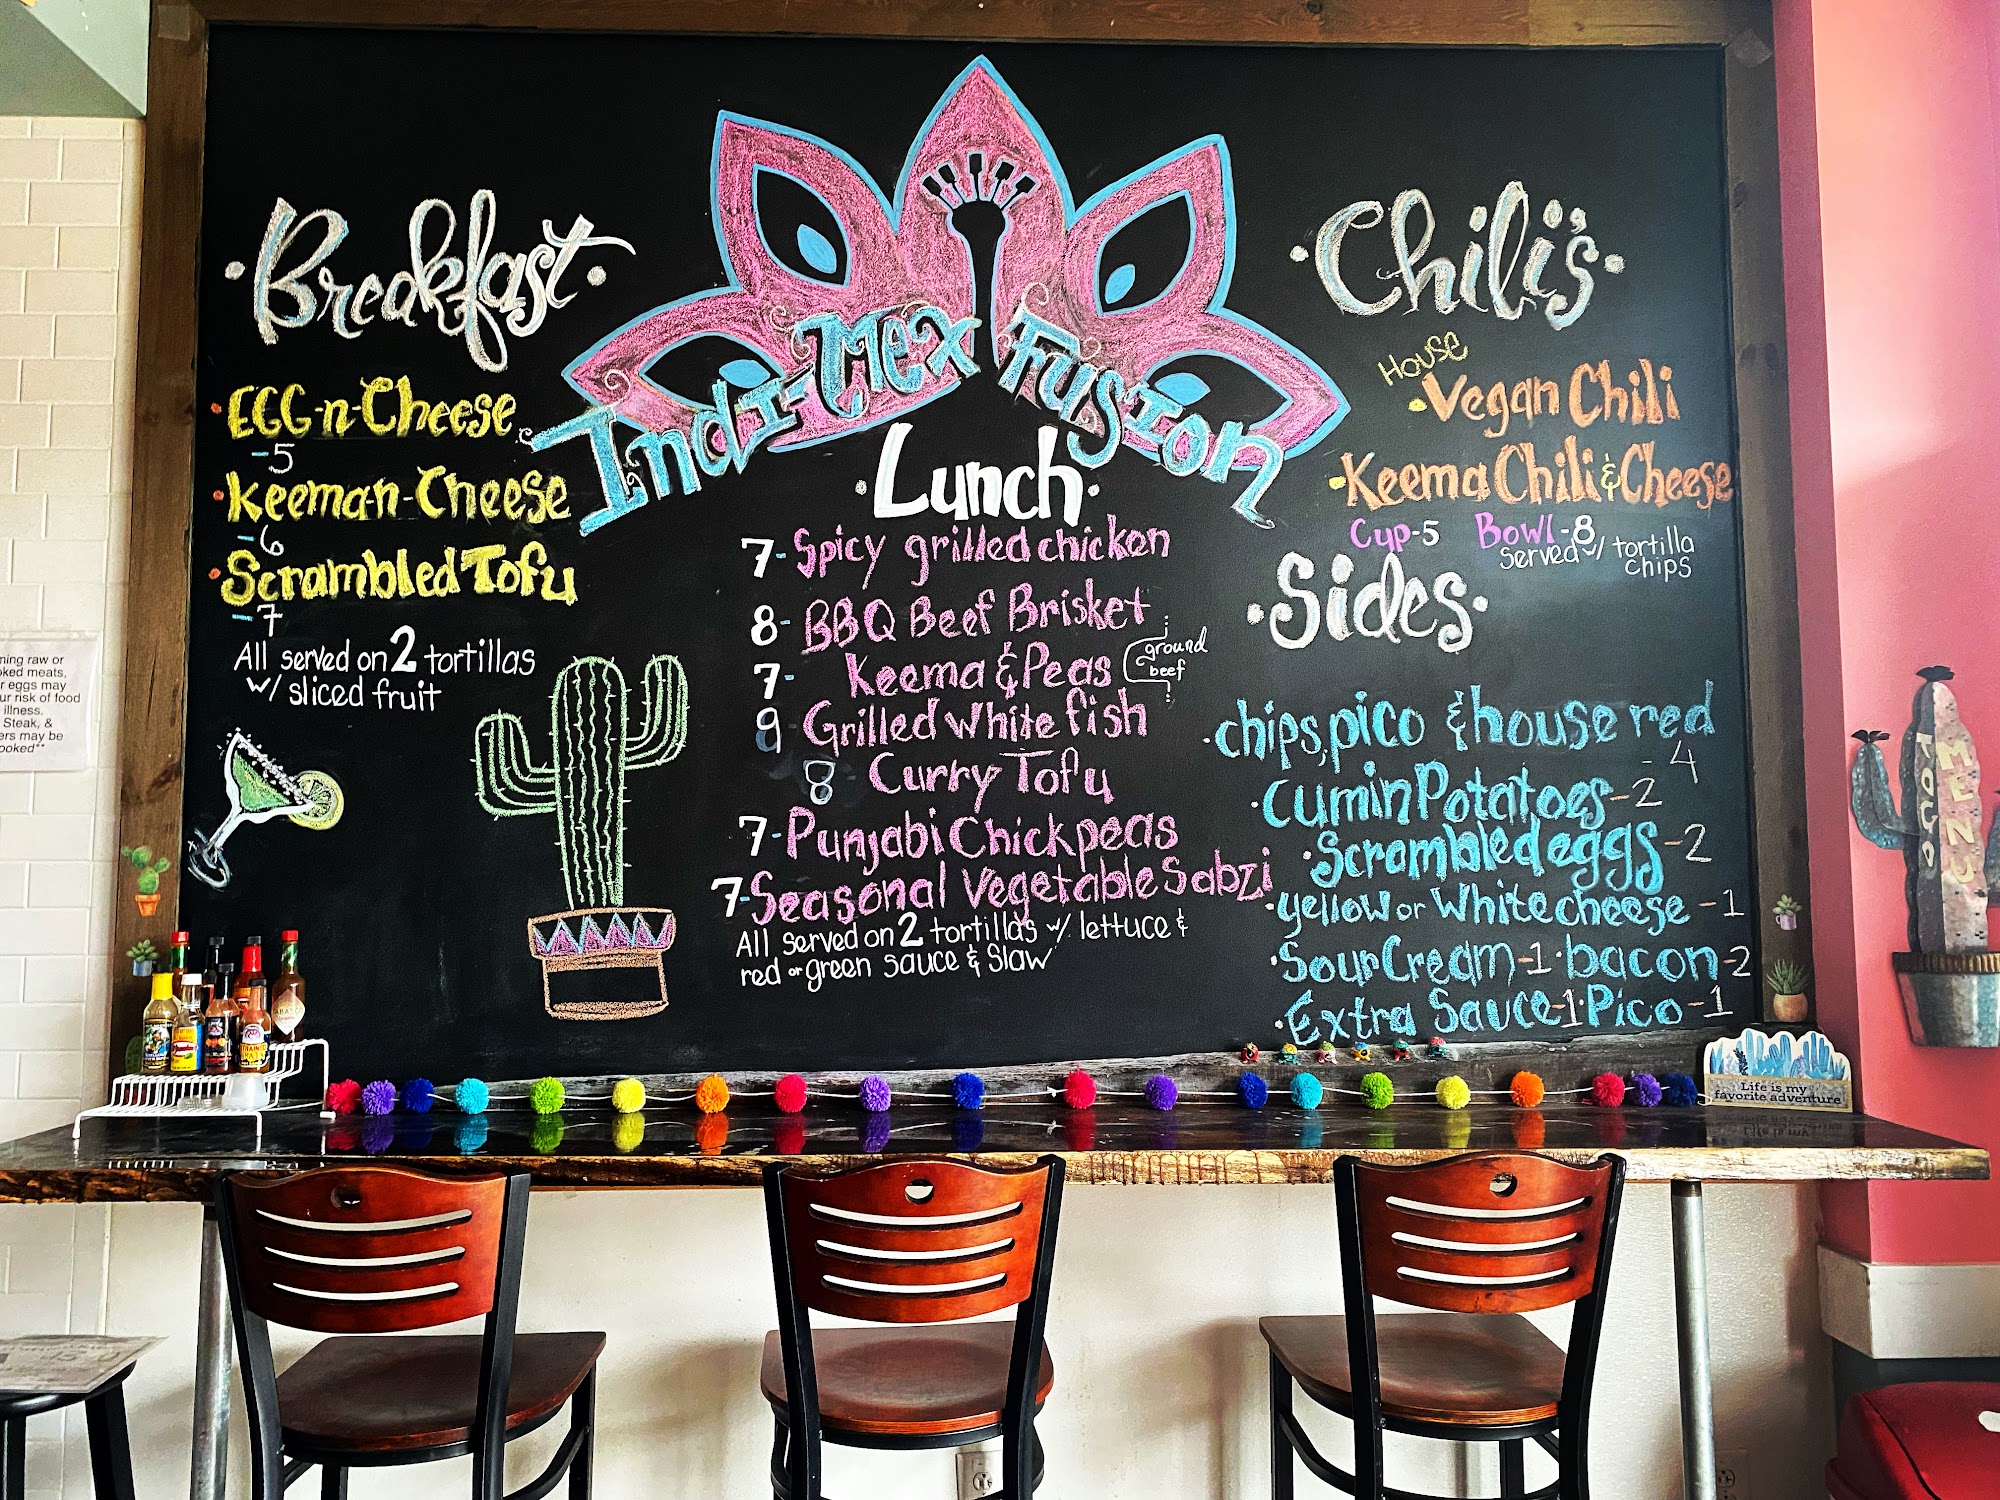 Breakfast
EGG-n-Cheese
-5
Keema-n-Cheese
-6
Scrambled Tofu
-7
All served on 2 tortillas
w/ sliced fruit
Indi-Mex Fusion
Lunch
7- Spicy grilled chicken
8- BBQ Beef Brisket
7- Keema & Peas ground
beef
9 Grilled white fish
8 Curry Tofu
7- Punjabi Chickpeas
7- Seasonal Vegetable Sabzi
All served on 2 tortillas w/ lettuce &
red or green sauce & slaw
Chili's
House
Vegan Chili
Keema Chili & Cheese
Cup-5 Bowl-8
served w/ tortilla
chips
Sides
chips, pico & house red
-4
Cumin Potatoes-2
Scrambled eggs-2
yellow or white cheese-1
Sour Cream-1·bacon-2
Extra Sauce-1·Pico-1
ming raw or
ked meats,
r eggs may
ur risk of food
illness.
Steak, &
ers may be
ooked**
FOOD
MENU
Life is my
favorite adventure